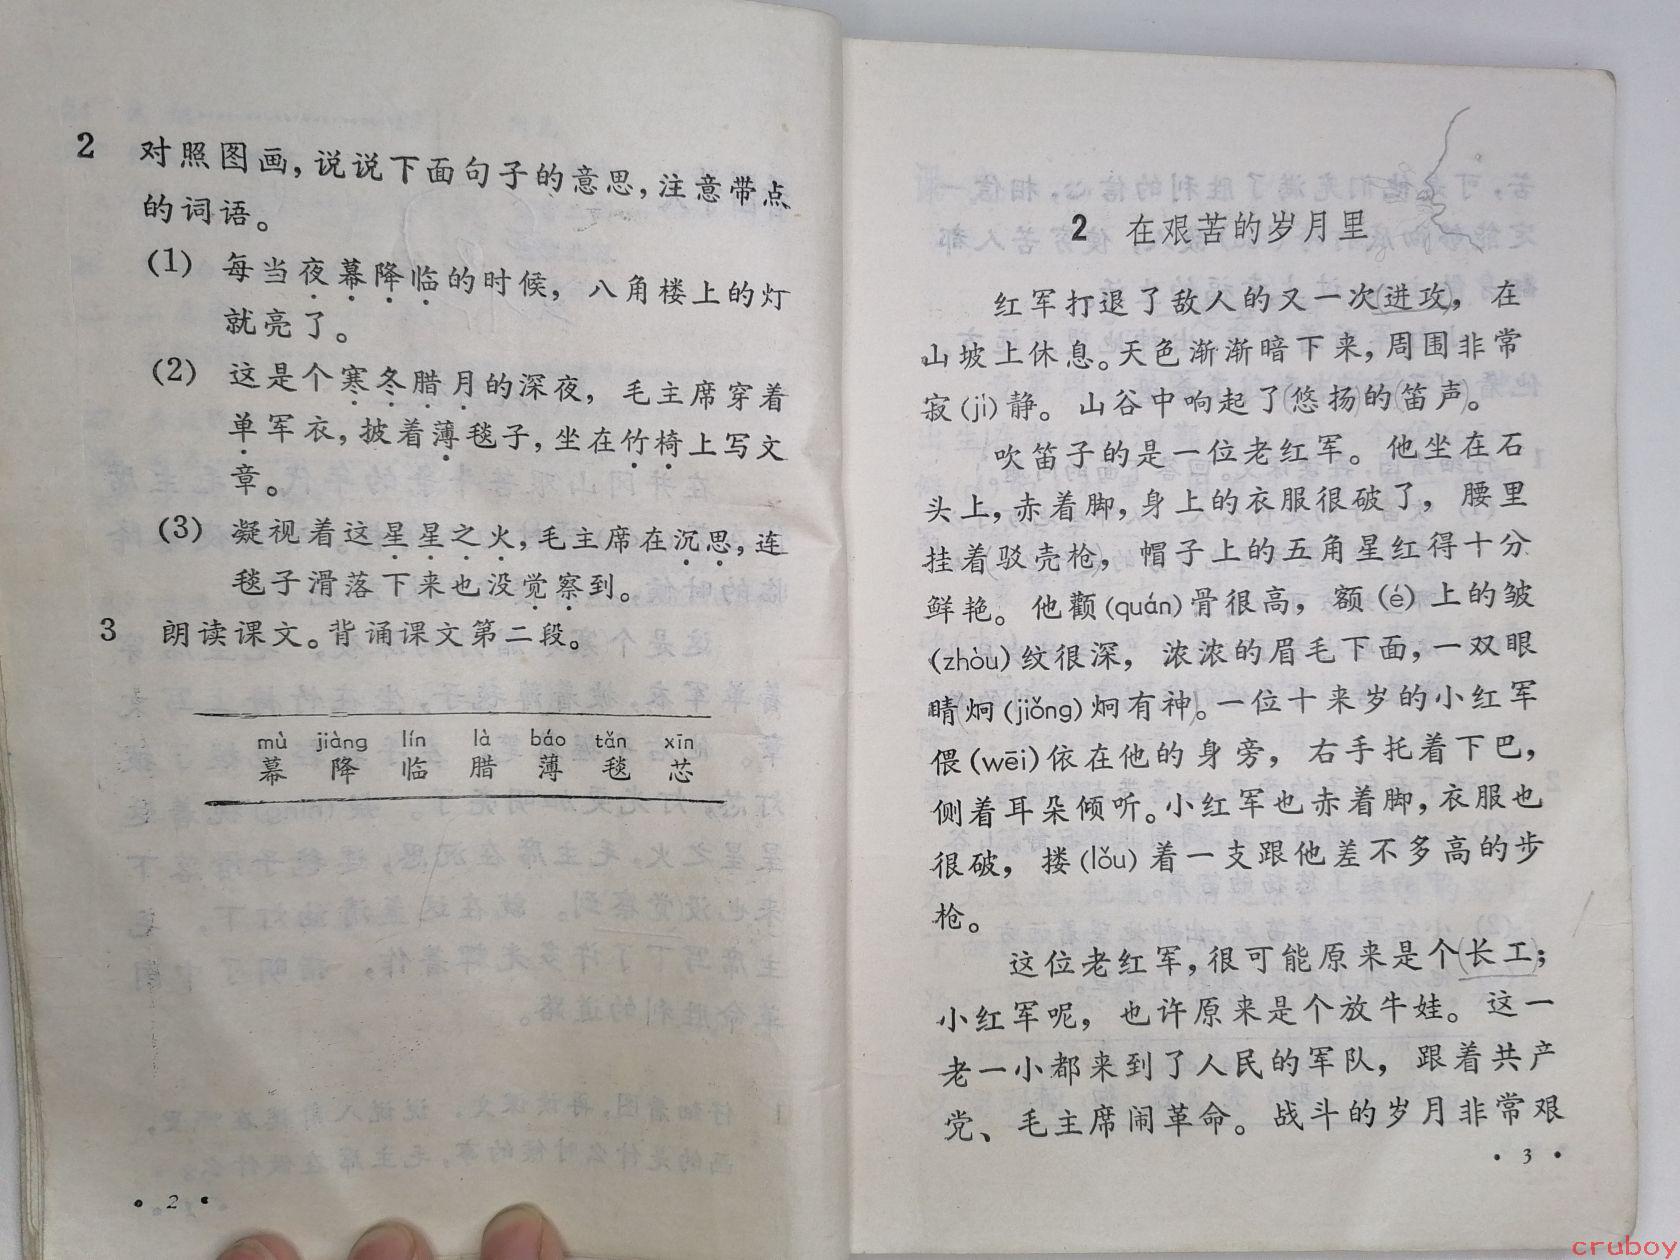 2 对照图画，说说下面句子的意思，注意带点
的词语。
(1) 每当夜幕降临的时候，八角楼上的灯
就亮了。
(2) 这是个寒冬腊月的深夜，毛主席穿着
单军衣，披着薄毯子，坐在竹椅上写文
章。
(3) 凝视着这星星之火，毛主席在沉思，连
毯子滑落下来也没觉察到。
3 朗读课文。背诵课文第二段。
mù jiàng lín là báo tǎn xīn
幕 降 临 腊 薄 毯 芯
• 2 •
2 在艰苦的岁月里
红军打退了敌人的又一次进攻，在
山坡上休息。天色渐渐暗下来，周围非常
寂(jì)静。山谷中响起了悠扬的笛声。
吹笛子的是一位老红军。他坐在石
头上，赤着脚，身上的衣服很破了，腰里
挂着驳壳枪，帽子上的五角星红得十分
鲜艳。他颧(quán)骨很高，额(é)上的皱
(zhòu)纹很深，浓浓的眉毛下面，一双眼
睛炯(jiǒng)炯有神。一位十来岁的小红军
偎(wēi)依在他的身旁，右手托着下巴，
侧着耳朵倾听。小红军也赤着脚，衣服也
很破，搂(lǒu)着一支跟他差不多高的步
枪。
这位老红军，很可能原来是个长工；
小红军呢，也许原来是个放牛娃。这一
老一小都来到了人民的军队，跟着共产
党、毛主席闹革命。战斗的岁月非常艰
• 3 •
cruboy